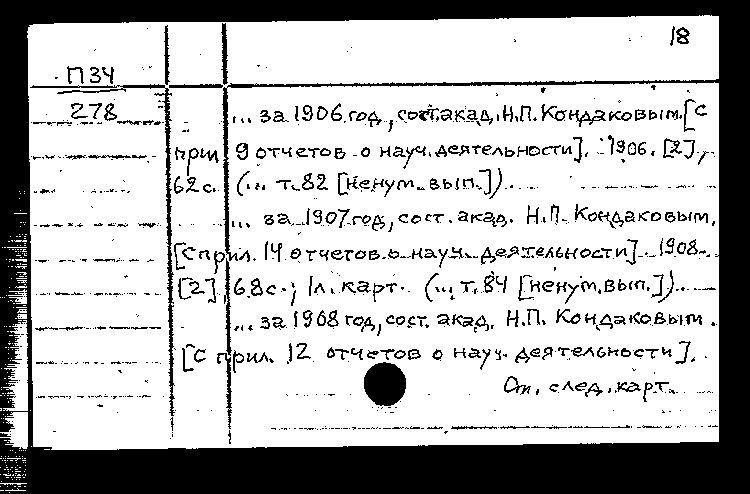 18
П34
278
... за 1906 год, сост. акад. Н.П. Кондаковым. [С
прил. 9 отчетов о науч. деятельности]. 1906. [2],
62 с. (... т. 82 [ненум. вып.]).
... за 1907 год, сост. акад. Н.П. Кондаковым,
[С прил. 14 отчетов о науч. деятельности]. 1908.
[2], 68 с.; 1 л. карт. (... т. 84 [ненум. вып.]).
... за 1908 год, сост. акад. Н.П. Кондаковым.
[С прил. 12 отчетов о науч. деятельности].
См. след. карт.